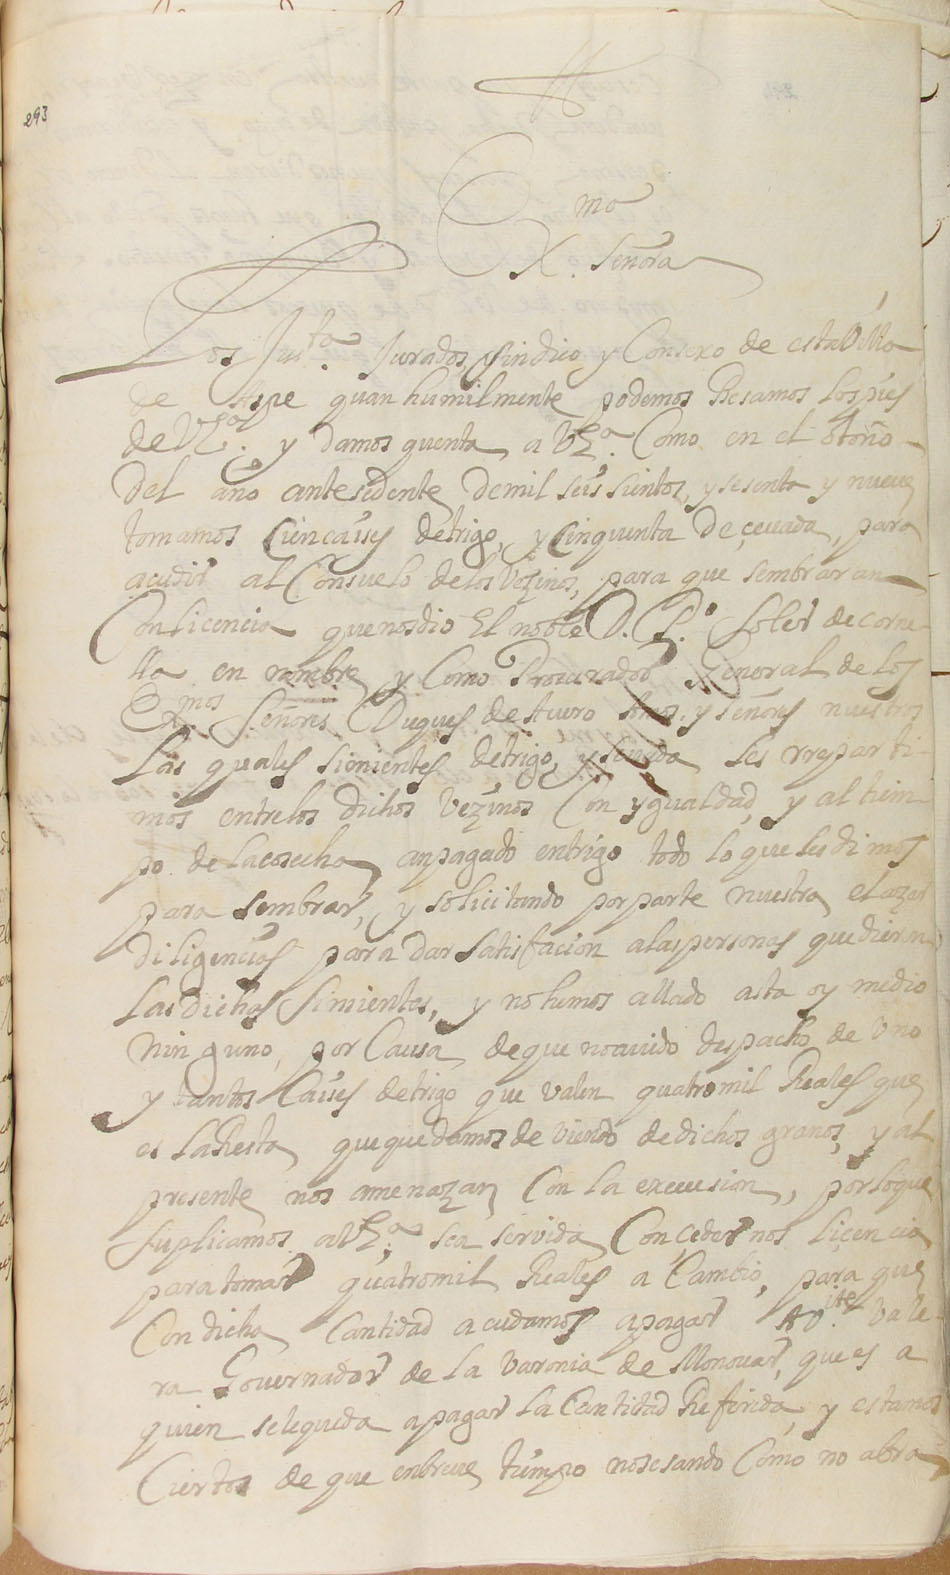 293
Exma
Señora
Los Justa. Jurados, sindico y Consexo de esta Villa
de Aspe quan humilmente podemos Besamos los pies
de VEa. y damos quenta a VEa. Como en el otoño
del año antesedente de mil seis sientos, y sesenta y nueve
tomamos Cien caises de trigo, y Cinquenta De çevada, para
acudir al Consuelo de los Vezinos, para que sembraran
Con licencia que nos dio El noble D. Po. Soler de Corne-
lla en nombre y Como Procurador General de los
Exmos Señores Duques de Avero Amos y señores nuestros
Las quales simientes de trigo, y sevada les rreparti-
mos entre los dichos Vezinos Con ygualdad, y al tiem-
po de la cosecha an pagado en trigo todo lo que les dimos
para sembrar, y solicitando por parte nuestra el azer
diligencias para dar satisfacion a las personas que dieron
Las dichas simientes, y no hemos allado asta oy medio
Ninguno, por Causa de que no avido despacho de Uno
y tantos Caises de trigo que valen quatromil Reales que
es La Resta que quedamos deviendo de dichos granos, y al
presente nos amenazan Con la execusion, por lo que
suplicamos a VEa. sea servida Concedernos liçencia
para tomar quatromil Reales a Cambio, para que
Con dicha Cantidad acudamos a pagar Vale-
ra Governador de la Varonia de Monovar, que es a
quien se le queda a pagar la Cantidad Referida, y estamos
Ciertos de que en breve tiempo nosesando Como no abra